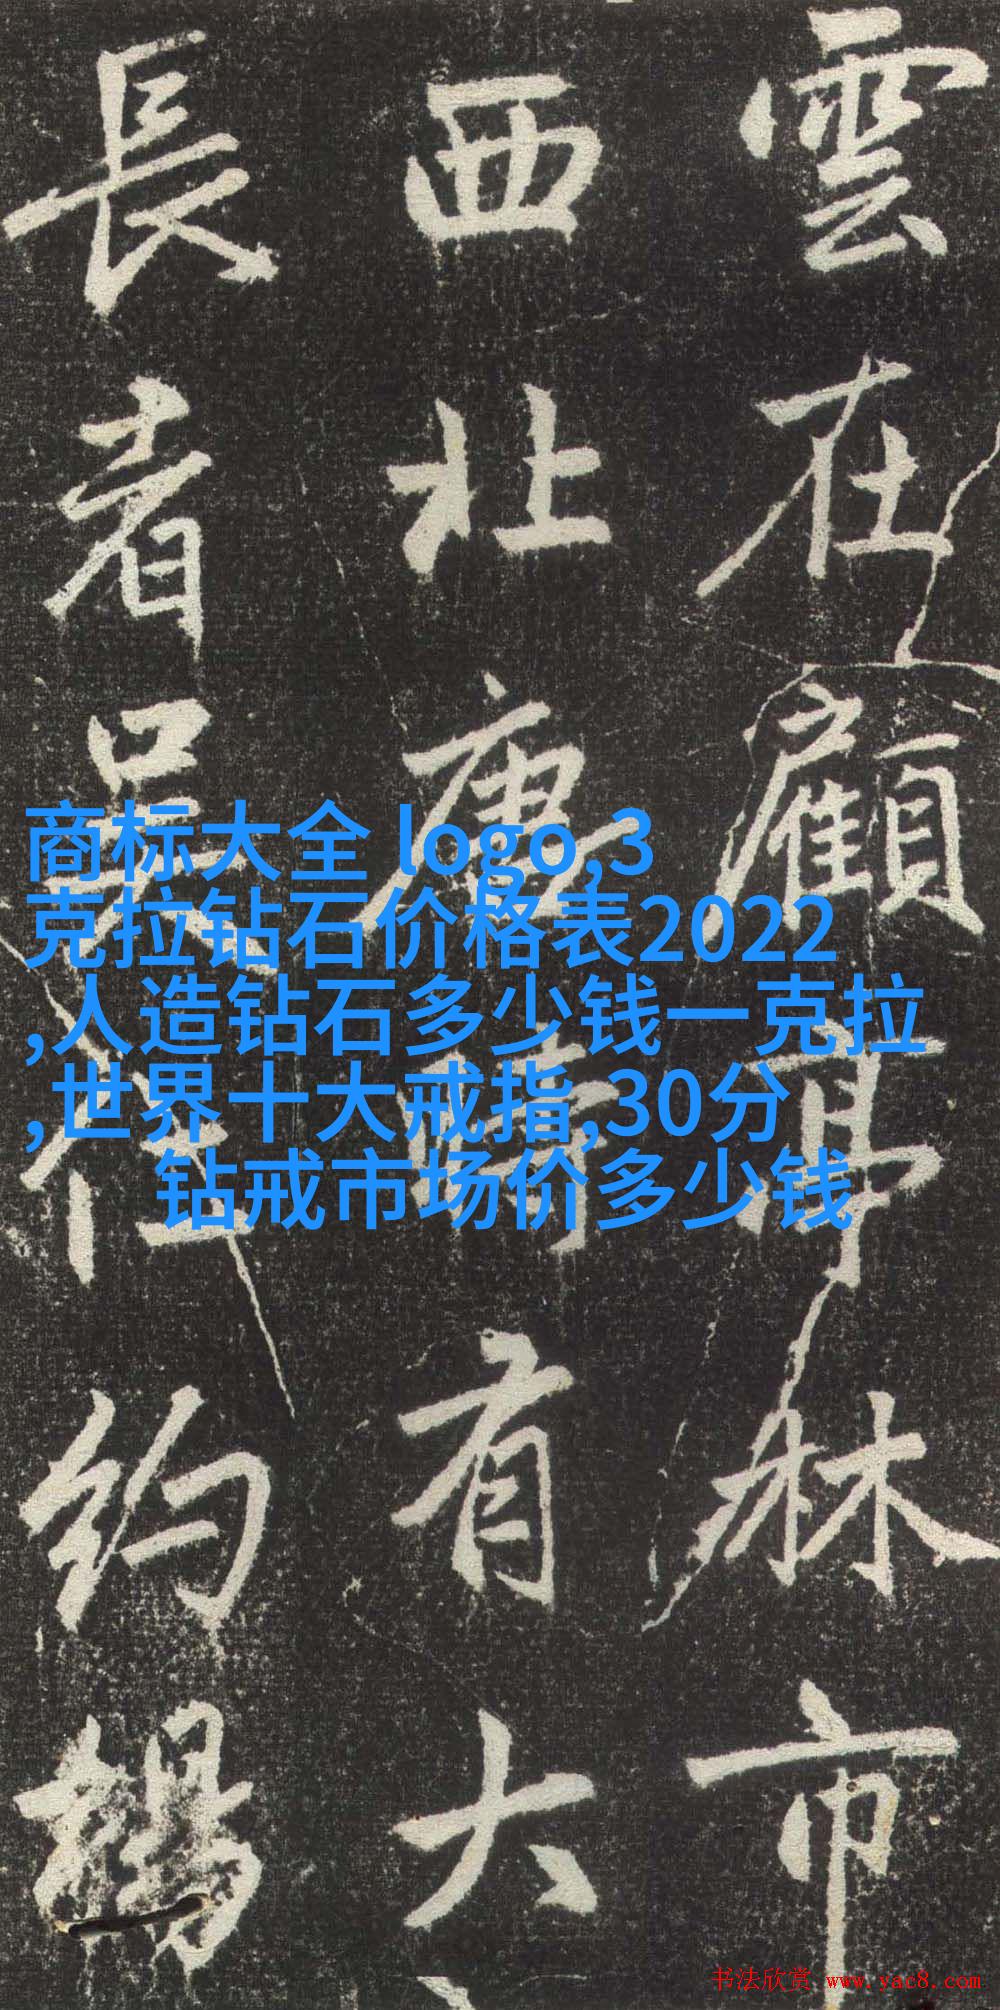 雲在顧亭林市
西北唐時有大
長者吳約
商标大全 logo,3
克拉钻石价格表2022
,人造钻石多少钱一克拉
,世界十大戒指,30分
钻戒市场价多少钱
书法欣赏 www.yac8.com